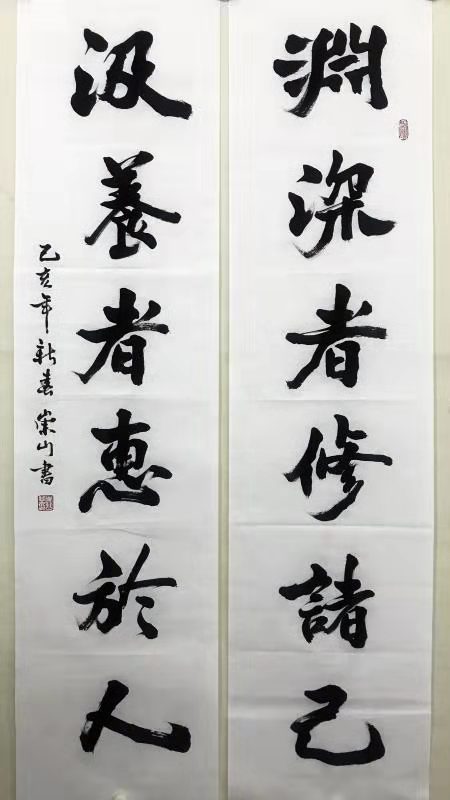 淵深者修諸己
汲養者惠於人
乙亥年新春崇山書